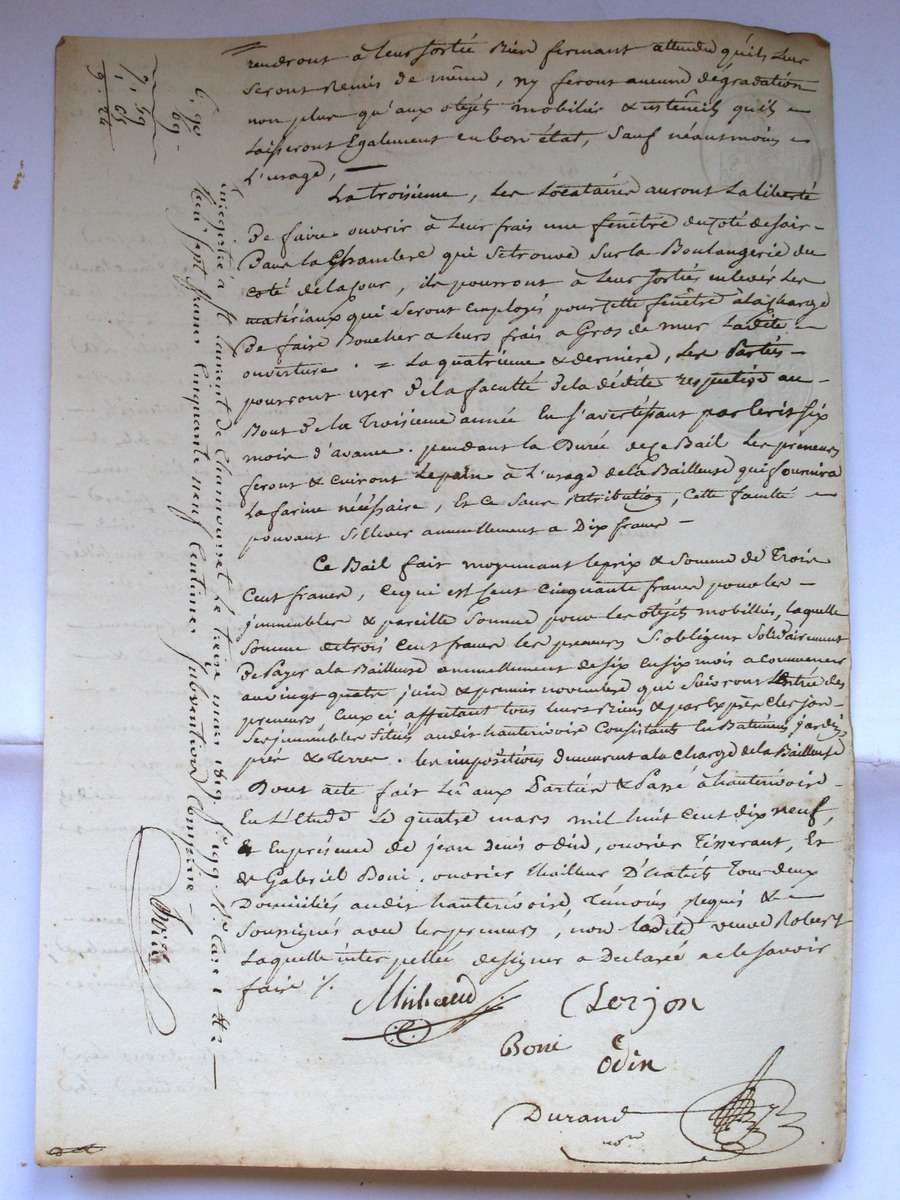 rendront à leur sortie bien fermant attendu qu'ils leur
seront remis de même, ny feront aucune dégradation
non plus qu'aux objets mobiliés & ustencils qu'ils
laisseront également en bon état, sauf néantmoins
L'usage,
La troisieme, Les Locataires auront La liberté
De faire ouvrir à Leur frais une fenêtre du côté de soir
Dans la Chambre qui se trouve sur la Boulangerie du
coté de la cour, ils pourront à Leur sorties enlever Les
matériaux qui seront employés pour cette fenêtre à la charge
De faire Boucher a leurs frais a Gros de mur Ladite
ouverture. = La quatrieme & derniere, Les Parties
pourront user de la faculté de la dédite respective au
Bout de la Troisieme année En s'avertissant par Ecrit six
mois d'avance. pendant la Durée de ce Bail Les preneurs
feront & cuiront Le pain à L'usage de la Bailleuse qui fournira
La farine nécéssaire, Et ce sans retribution, Cette faculté
pouvant s'élever annuellement a Dix francs
Ce Bail fait moyennant le prix & somme de Trois
Cent francs, Ce qui est Cent cinquante francs pour les
immeubles & pareille somme pour les objets mobilliés, laquelle
somme de trois Cent francs les preneurs s'obligent solidairement
De payer a la Bailleuse annuellement de six en six mois a commencer
au vingt quatre juin & premier novembre qui suivront L'entrée des
preneurs, Ceux ci affectant tous leurs biens & par Exprès Clerjon
ses immeubles situés audit hauterivoire Consistants En Batiments, jardin,
prés & Terres. les impositions demeurent a la charge de la Bailleuse
Dont acte fait Lû aux Parties & Passé à hauterivoire
En L'Etude Le quatre mars mil huit cent dix neuf,
En presence de jean denis odin, ouvrier Tisserant, Et
de Gabriel Boni, ouvrier Thailleur D'habits Tous deux
Domiciliés audit hauterivoire, Témoins requis &
soussignés avec les preneurs, non Ladite veuve Robert
Laquelle interpellée de signer a Declarée ne le savoir
faire /.
Clerjon
Boni
Odin
Durand
nore
Enregistré à St Laurent de Chamousset le treize mars 1819
Recu sept francs Cinquante neuf Centimes subvention Comprise
6. 90
69
7, 59
1, 65
9. 24